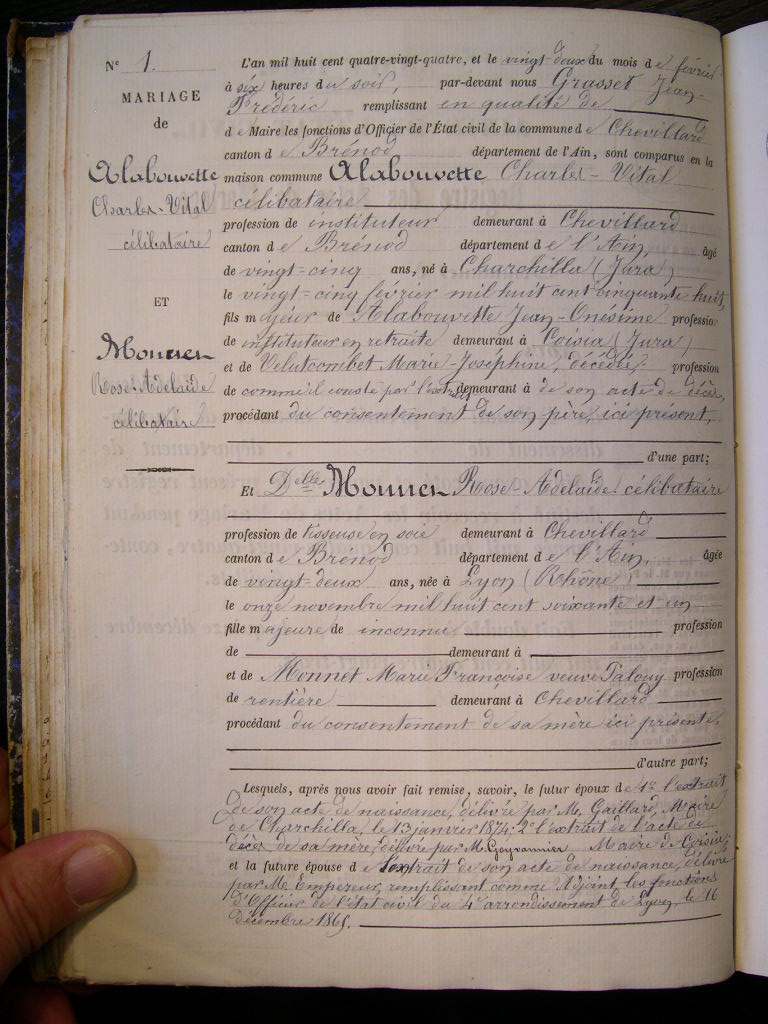 N° 1.
MARIAGE
de
Alabouvette
Charles-Vital
célibataire
ET
Monnet
Rose-Adelaïde
célibataire
L'an mil huit cent quatre-vingt-quatre, et le vingt-deux du mois de février
à six heures du soir, par-devant nous Grasset Jean-
Frédéric remplissant en qualité de
de Maire les fonctions d'Officier de l'État civil de la commune de Chevillard
canton de Brénod département de l'Ain, sont comparus en la
maison commune Alabouvette Charles-Vital
célibataire
profession de instituteur demeurant à Chevillard
canton de Brénod département de l'Ain, âgé
de vingt-cinq ans, né à Charchilla (Jura)
le vingt-cinq février mil huit cent cinquante huit,
fils majeur de Alabouvette Jean-Onésime profession
de instituteur en retraite demeurant à Coisia (Jura)
et de Velutcombet Marie-Joséphine, décédée profession
de comme il conste par l'extrait demeurant à de son acte de décès,
procédant du consentement de son père, ici présent,
d'une part;
Et Delle Monnet Rose-Adelaïde célibataire
profession de tisseuse en soie demeurant à Chevillard
canton de Brénod département de l'Ain, âgée
de vingt-deux ans, née à Lyon (Rhône)
le onze novembre mil huit cent soixante et un
fille majeure de inconnu profession
de demeurant à
et de Monnet Marie Françoise veuve profession
de rentière demeurant à Chevillard
procédant du consentement de sa mère ici présente,
d'autre part;
Lesquels, après nous avoir fait remise, savoir, le futur époux de 1° l'extrait
de son acte de naissance, délivré par M. Gaillard, Maire
de Charchilla, le 13 janvier 1874: 2° l'extrait de l'acte de
décès de sa mère, délivré par M. Maire de Coisia;
et la future épouse de l'extrait de son acte de naissance, délivré
par M. Empereur, remplissant comme Adjoint, les fonctions
d'Officier de l'état civil du 4e arrondissement de Lyon, le 16
Décembre